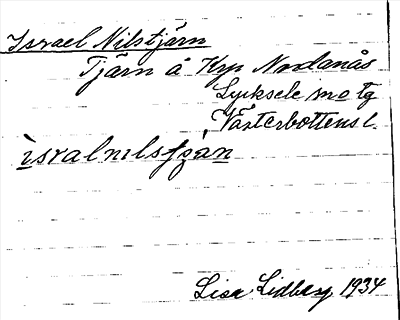 Israel Nilstjärn
Tjärn å Kyr Nordanås
Lycksele sn o tg
Västerbottens l.
ìsralnılsʃʒàn
Lisa Lidberg 1934